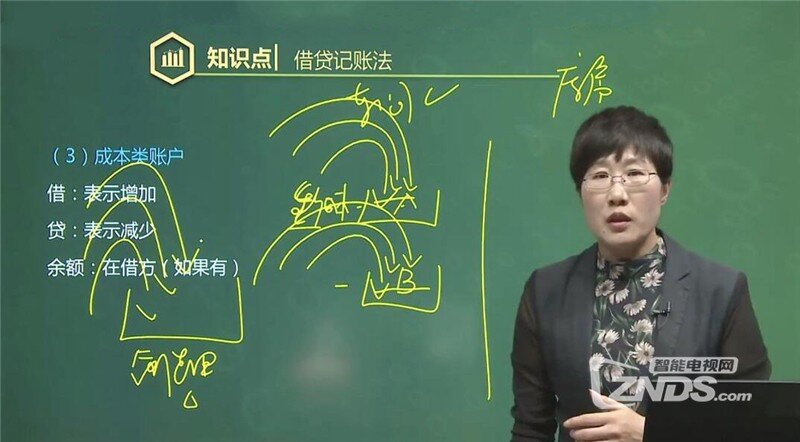 知识点 借贷记账法
（3）成本类账户
借：表示增加
贷：表示减少
余额：在借方（如果有）
A
B
智能电视网
ZNDS.com